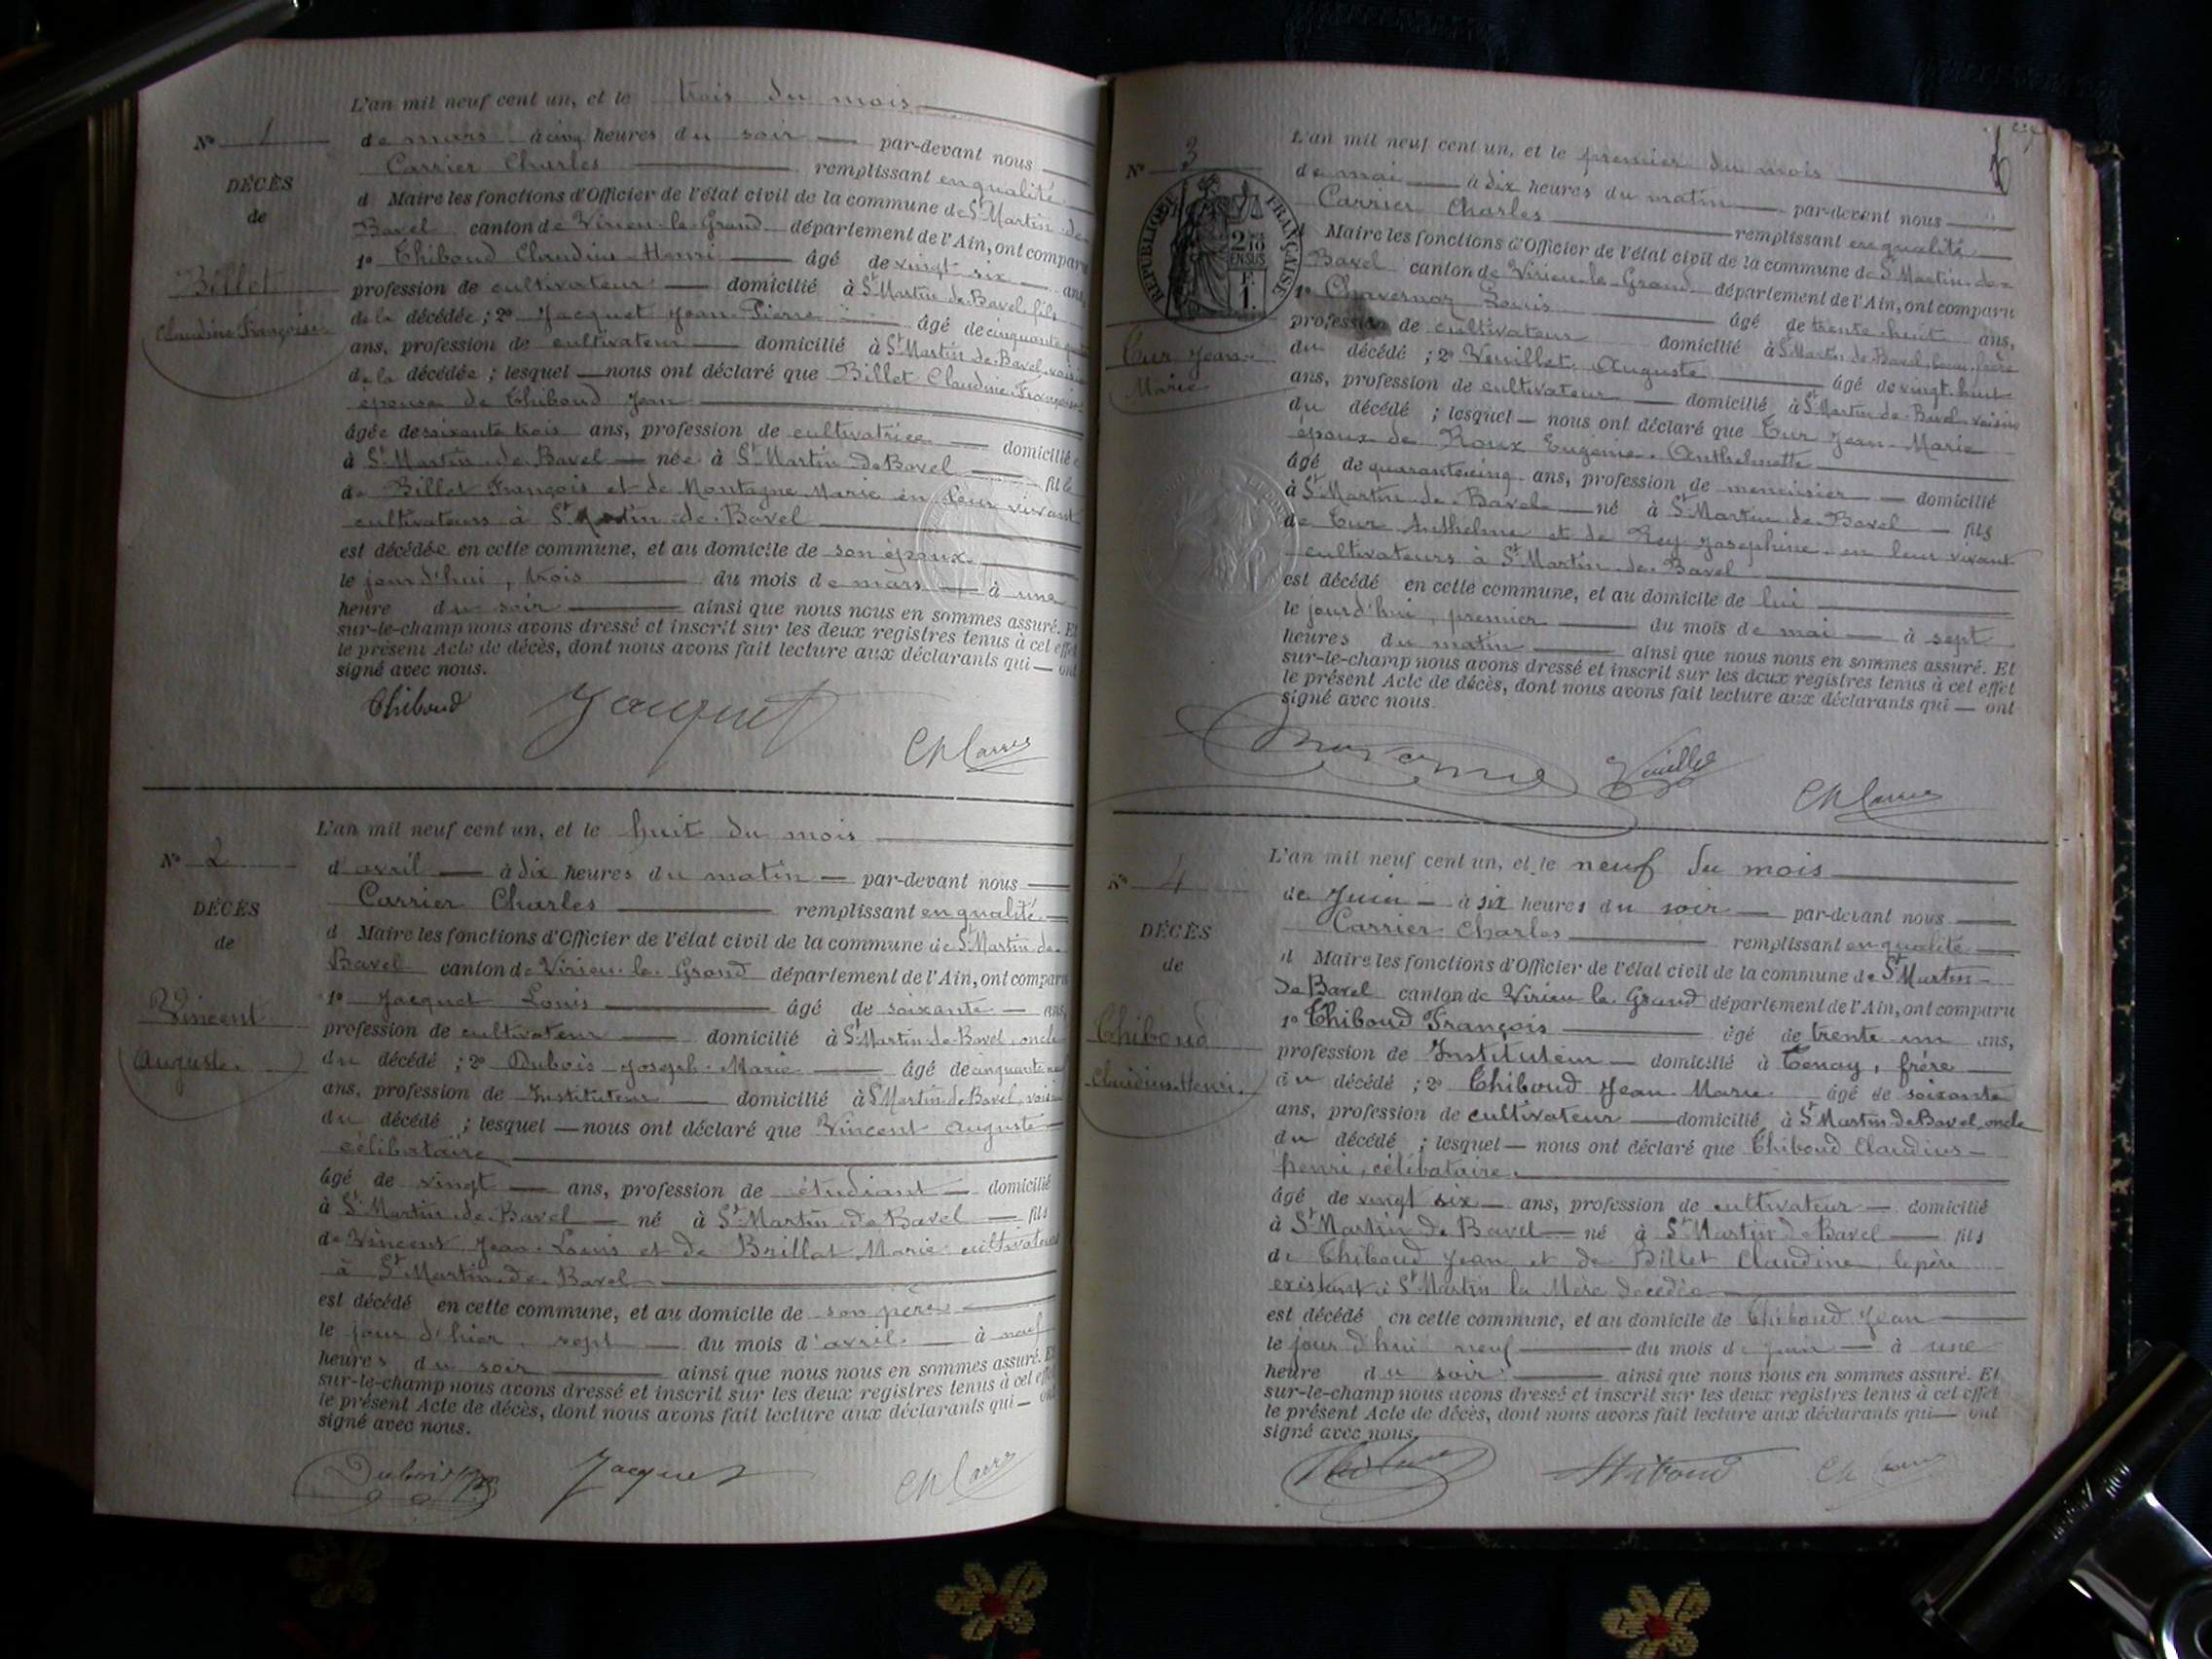 L'an mil neuf cent un, et le trois du mois
Nº 1
de mars à cinq heures du soir par-devant nous
Carrier Charles remplissant en qualité
DÉCÈS
d Maire les fonctions d'Officier de l'état civil de la commune de St Martin de
de
Bavel canton de Virieu-le-Grand département de l'Ain, ont comparu
1º Thiboud Claudius Henri âgé de vingt six ans,
Billet
profession de cultivateur domicilié à St Martin de Bavel, fils
Claudine Françoise
de la décédée ; 2º Jacquet Jean Pierre âgé de cinquante
ans, profession de cultivateur domicilié à St Martin de Bavel, voisin
de la décédée ; lesquel nous ont déclaré que Billet Claudine Françoise
épouse de Thiboud Jean
âgée de soixante trois ans, profession de cultivatrice domiciliée
à St Martin de Bavel née à St Martin de Bavel fille
de Billet François et de Montagne Marie en leur vivant
cultivateurs à St Martin de Bavel
est décédée en cette commune, et au domicile de son époux
le jourd'hui, trois du mois de mars à une
heure du soir ainsi que nous nous en sommes assuré. Et
sur-le-champ nous avons dressé et inscrit sur les deux registres tenus à cet effet
le présent Acte de décès, dont nous avons fait lecture aux déclarants qui — ont
signé avec nous.
Thiboud Jacquet Ch Carrier
L'an mil neuf cent un, et le huit du mois
Nº 2
d'avril à dix heures du matin par-devant nous
Carrier Charles remplissant en qualité
DÉCÈS
d Maire les fonctions d'Officier de l'état civil de la commune de St Martin de
de
Bavel canton de Virieu-le-Grand département de l'Ain, ont comparu
1º Jacquet Louis âgé de soixante ans,
Vincent
profession de cultivateur domicilié à St Martin de Bavel, oncle
Auguste
du décédé ; 2º Dubois Joseph Marie âgé de cinquante
ans, profession de Instituteur domicilié à St Martin de Bavel, voisin
du décédé ; lesquel — nous ont déclaré que Vincent Auguste
célibataire
âgé de vingt ans, profession de étudiant domicilié
à St Martin de Bavel né à St Martin de Bavel fils
de Vincent Jean Louis et de Brillat Marie cultivateurs
à St Martin de Bavel
est décédé en cette commune, et au domicile de son père
le jour d'hier, sept du mois d'avril à neuf
heures du soir ainsi que nous nous en sommes assuré. Et
sur-le-champ nous avons dressé et inscrit sur les deux registres tenus à cet effet
le présent Acte de décès, dont nous avons fait lecture aux déclarants qui — ont
signé avec nous.
Dubois Jacquet Ch Carrier
L'an mil neuf cent un, et le premier du mois
Nº 3
de mai à dix heures du matin par-devant nous
Carrier Charles remplissant en qualité
RÉPUBLIQUE FRANÇAISE
2/10 EN SUS
F. 1.
d Maire les fonctions d'Officier de l'état civil de la commune de St Martin de
Bavel canton de Virieu-le-Grand département de l'Ain, ont comparu
1º Chavernoz Louis âgé de trente huit ans,
profession de cultivateur domicilié à St Martin de Bavel, beau-frère
Tur Jean
Marie
du décédé ; 2º Veuillet Auguste âgé de vingt huit
ans, profession de cultivateur domicilié à St Martin de Bavel voisin
du décédé ; lesquel — nous ont déclaré que Tur Jean-Marie
époux de Roux Eugénie Anthelmette
âgé de quarante cinq ans, profession de menuisier domicilié
à St Martin de Bavel né à St Martin de Bavel fils
de Tur Anthelme et de Rey Josephine en leur vivant
cultivateurs à St Martin de Bavel
est décédé en cette commune, et au domicile de lui
le jourd'hui, premier du mois de mai à sept
heures du matin ainsi que nous nous en sommes assuré. Et
sur-le-champ nous avons dressé et inscrit sur les deux registres tenus à cet effet
le présent Acte de décès, dont nous avons fait lecture aux déclarants qui — ont
signé avec nous.
Veuillet Ch Carrier
L'an mil neuf cent un, et le neuf du mois
Nº 4
de Juin à six heures du soir par-devant nous
Carrier Charles remplissant en qualité
DÉCÈS
d Maire les fonctions d'Officier de l'état civil de la commune de St Martin
de
de Bavel canton de Virieu le Grand département de l'Ain, ont comparu
1º Thiboud François âgé de trente un ans,
Thiboud
profession de Instituteur domicilié à Tenay, frère
Claudius Henri
du décédé ; 2º Thiboud Jean Marie âgé de soixante
ans, profession de cultivateur domicilié à St Martin de Bavel, oncle
du décédé ; lesquel — nous ont déclaré que Thiboud Claudius
henri, célibataire
âgé de vingt six ans, profession de cultivateur domicilié
à St Martin de Bavel né à St Martin de Bavel fils
de Thiboud Jean et de Billet Claudine, le père
existant à St Martin la Mère décédée
est décédé en cette commune, et au domicile de Thiboud Jean
le jour d'hui neuf du mois de juin à une
heure du soir ainsi que nous nous en sommes assuré. Et
sur-le-champ nous avons dressé et inscrit sur les deux registres tenus à cet effet
le présent Acte de décès, dont nous avons fait lecture aux déclarants qui — ont
signé avec nous.
Thiboud Thiboud Ch Carrier